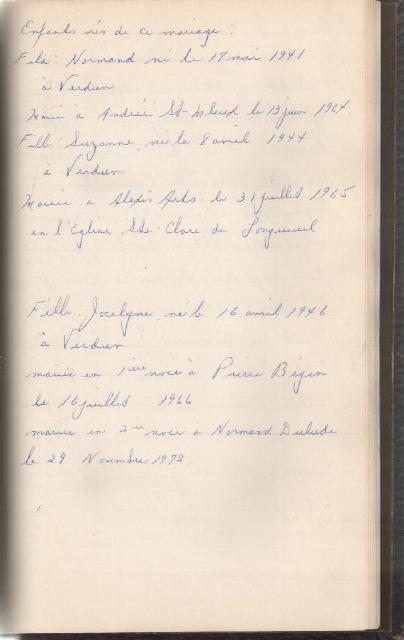 Enfants nés de ce mariage :
Fils : Normand né le 17 mai 1941
à Verdun
Marié à Andrée St- le 13 juin 1964
Fille : Suzanne, née le 8 avril 1944
à Verdun
Mariée à Alexis le 31 juillet 1965
en l'Église Ste-Clare de Longueuil
Fille : Jocelyne, née le 16 avril 1946
à Verdun
mariée en 1ière noce à Pierre Bégin
le 16 juillet 1966
mariée en 2ième noce à Normand Dulude
le 29 Novembre 1972